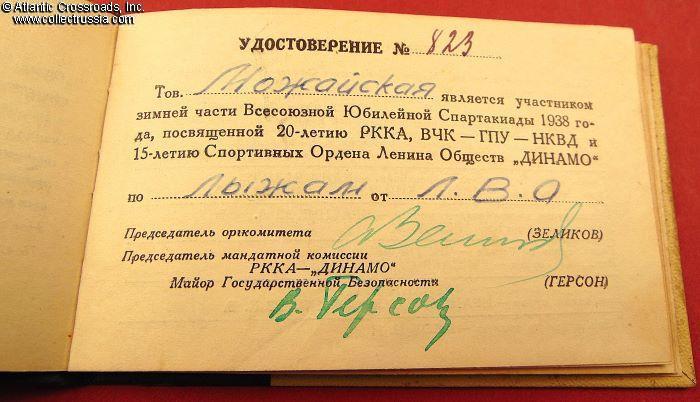 © Atlantic Crossroads, Inc.
www.collectrussia.com
УДОСТОВЕРЕНИЕ № 823
Тов. Можайская является участником
зимней части Всесоюзной Юбилейной Спартакиады 1938 го-
да, посвященной 20-летию РККА, ВЧК—ГПУ—НКВД и
15-летию Спортивных Ордена Ленина Обществ „ДИНАМО“
по лыжам от Л.В.О
Председатель оргкомитета (ЗЕЛИКОВ)
Председатель мандатной комиссии
РККА—„ДИНАМО“
Майор Государственной Безопасности (ГЕРСОН)
В. Герсон